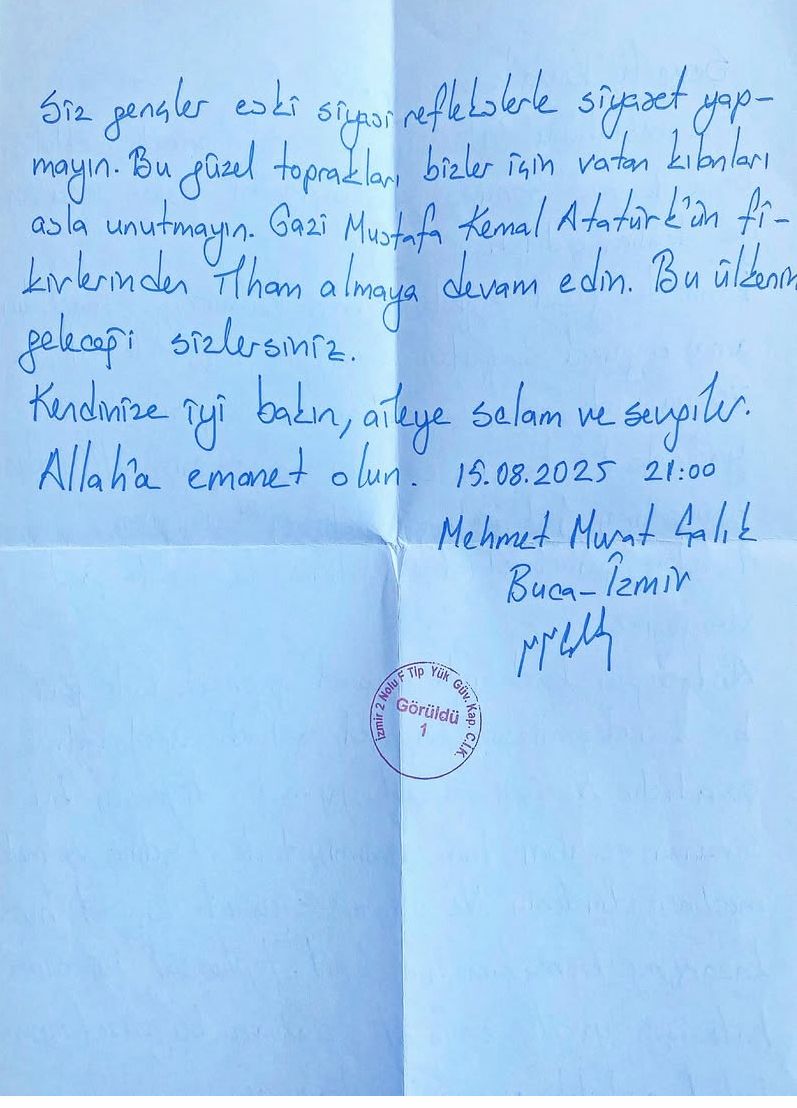 Siz gençler eski siyasi reflekslerle siyaset yap-
mayın. Bu güzel toprakları bizler için vatan kılanları
asla unutmayın. Gazi Mustafa Kemal Atatürk'ün fi-
kirlerinden ilham almaya devam edin. Bu ülkenin
geleceği sizlersiniz.
Kendinize iyi bakın, aileye selam ve sevgiler.
Allah'a emanet olun. 15.08.2025 21:00
Mehmet Murat Çalık
Buca-İzmir
İzmir 2 Nolu F Tip Yük Güv. Kap. C.İ.K.
Görüldü
1